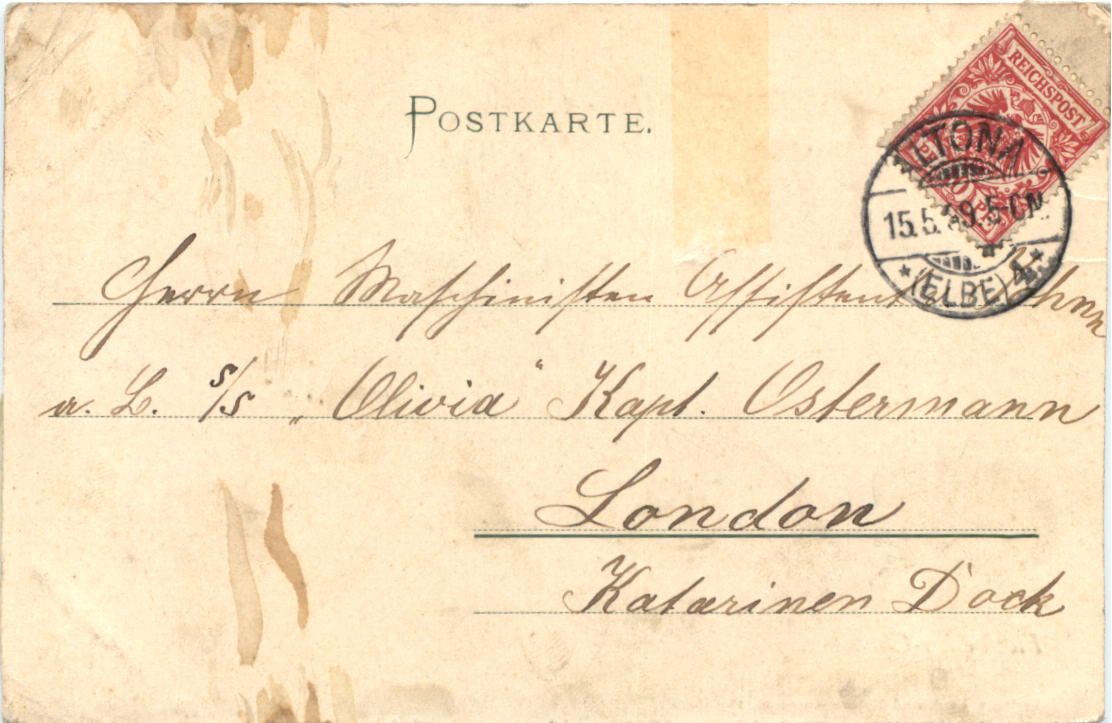 POSTKARTE.
REICHSPOST
15.5. 9.5-6N
(ELBE) 4.
Herrn Maschinisten Assistent
a. B. S/S „Olivia“ Kapt. Ostermann
London
Katarinen Dock